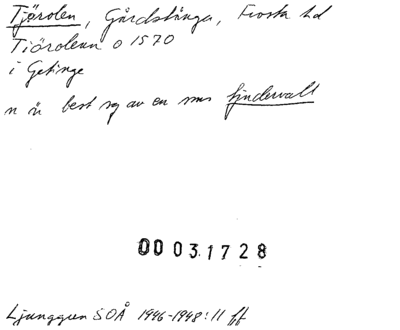 Tjörolen, Gårdstånga, Frosta hd
Tiörolenn o 1570
i Getinge
n är best sg av en sms fjädervall
00 031728
Ljunggren SOÅ 1946-1948:11 ff